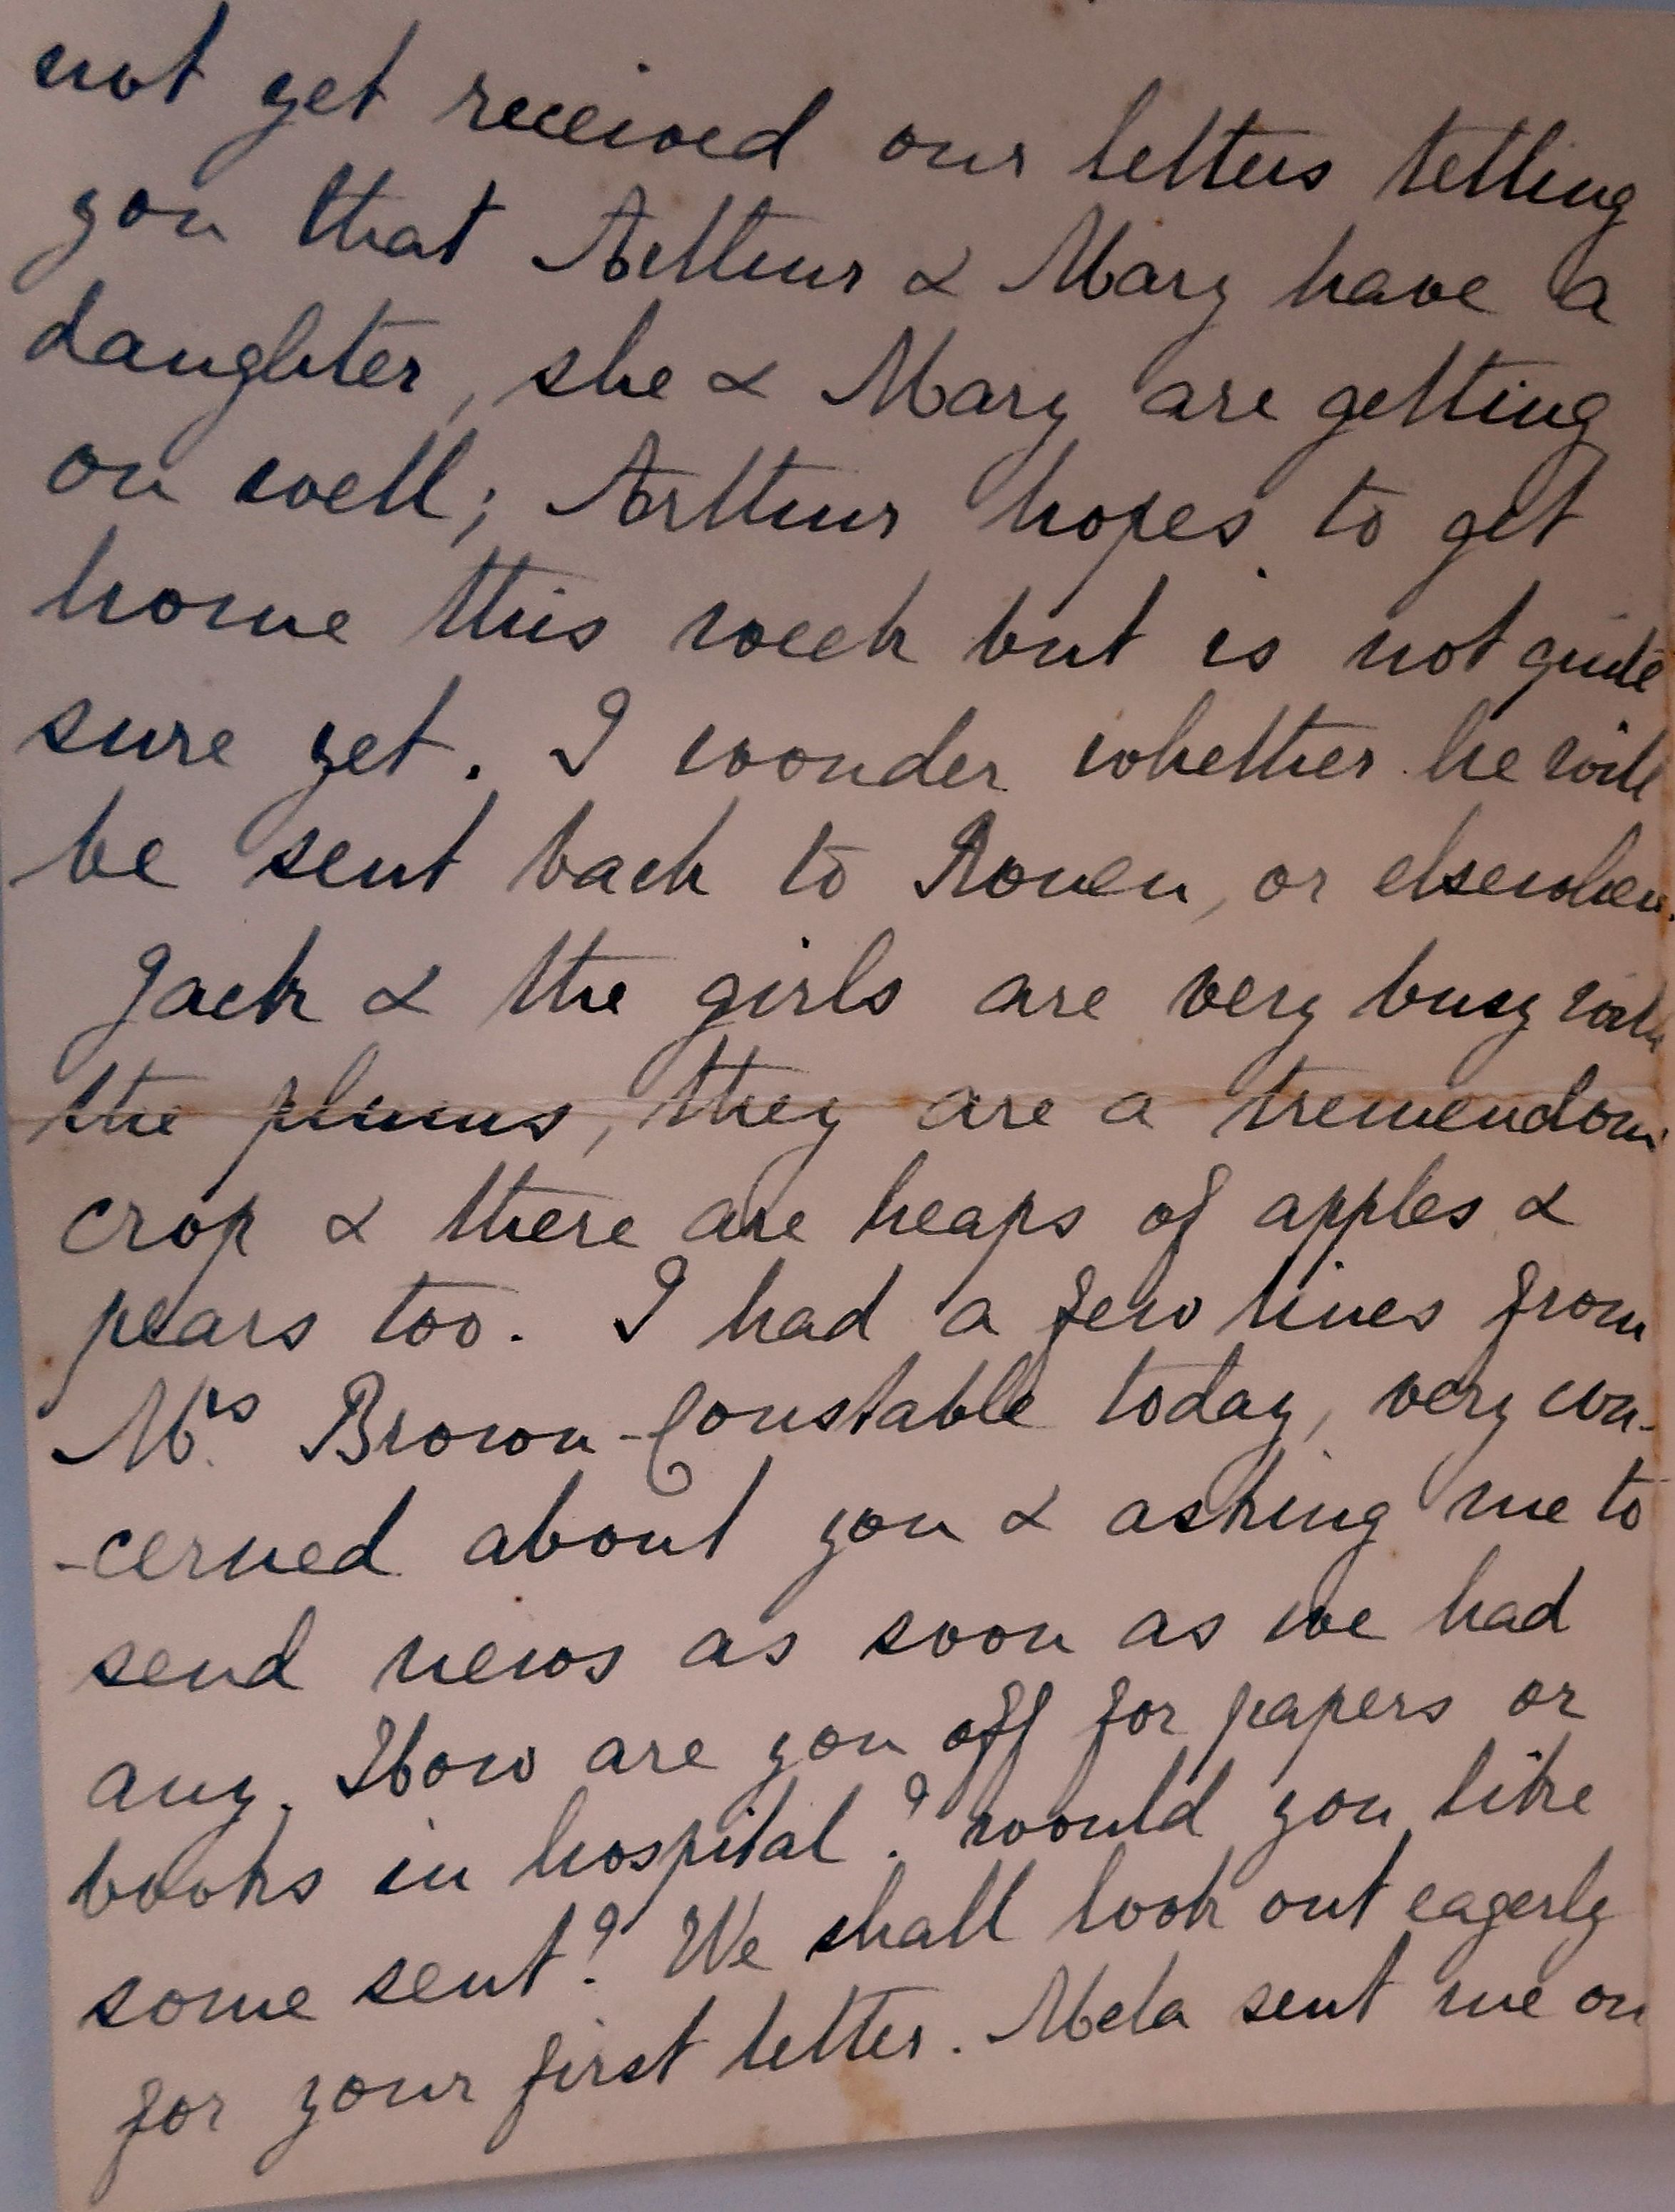 not yet received our letters telling
you that Arthur & Mary have a
daughter, she & Mary are getting
on well; Arthur hopes to get
home this week but is not quite
sure yet. I wonder whether he will
be sent back to Rouen, or elsewhere.
Jack & the girls are very busy with
the plums, they are a tremendous
crop & there are heaps of apples &
pears too. I had a few lines from
Mrs Brown-Constable today, very con-
-cerned about you & asking me to
send news as soon as we had
any. How are you off for papers or
books in hospital? would you like
some sent? We shall look out eagerly
for your first letter. Mela sent me on